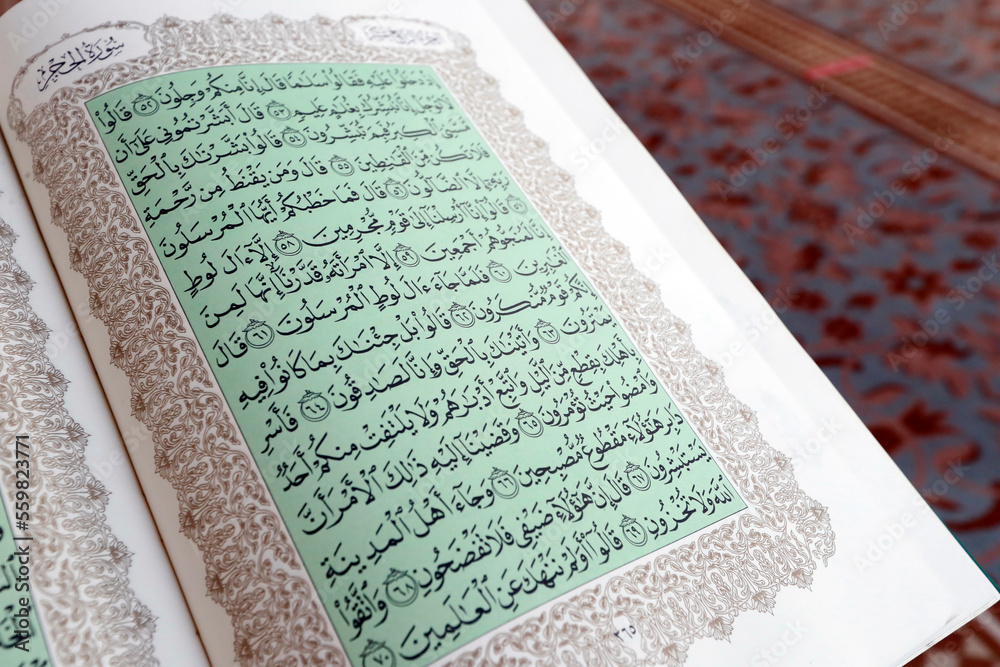 سُورَةُ الحِجْرِ
إِذْ دَخَلُوا۟ عَلَيْهِ فَقَالُوا۟ سَلَـٰمًا قَالَ إِنَّا مِنكُمْ وَجِلُونَ ٥٢ قَالُوا۟
لَا تَوْجَلْ إِنَّا نُبَشِّرُكَ بِغُلَـٰمٍ عَلِيمٍ ٥٣ قَالَ أَبَشَّرْتُمُونِى عَلَىٰٓ أَن
مَّسَّنِىَ ٱلْكِبَرُ فَبِمَ تُبَشِّرُونَ ٥٤ قَالُوا۟ بَشَّرْنَـٰكَ بِٱلْحَقِّ
فَلَا تَكُن مِّنَ ٱلْقَـٰنِطِينَ ٥٥ قَالَ وَمَن يَقْنَطُ مِن رَّحْمَةِ
رَبِّهِۦٓ إِلَّا ٱلضَّآلُّونَ ٥٦ قَالَ فَمَا خَطْبُكُمْ أَيُّهَا ٱلْمُرْسَلُونَ
٥٧ قَالُوٓا۟ إِنَّآ أُرْسِلْنَآ إِلَىٰ قَوْمٍ مُّجْرِمِينَ ٥٨ إِلَّآ ءَالَ لُوطٍ
إِنَّا لَمُنَجُّوهُمْ أَجْمَعِينَ ٥٩ إِلَّا ٱمْرَأَتَهُۥ قَدَّرْنَآ إِنَّهَا لَمِنَ
ٱلْغَـٰبِرِينَ ٦٠ فَلَمَّا جَآءَ ءَالَ لُوطٍ ٱلْمُرْسَلُونَ ٦١ قَالَ
إِنَّكُمْ قَوْمٌ مُّنكَرُونَ ٦٢ قَالُوا۟ بَلْ جِئْنَـٰكَ بِمَا كَانُوا۟ فِيهِ
يَمْتَرُونَ ٦٣ وَأَتَيْنَـٰكَ بِٱلْحَقِّ وَإِنَّا لَصَـٰدِقُونَ ٦٤ فَأَسْرِ
بِأَهْلِكَ بِقِطْعٍ مِّنَ ٱلَّيْلِ وَٱتَّبِعْ أَدْبَـٰرَهُمْ وَلَا يَلْتَفِتْ مِنكُمْ أَحَدٌ
وَٱمْضُوا۟ حَيْثُ تُؤْمَرُونَ ٦٥ وَقَضَيْنَآ إِلَيْهِ ذَٰلِكَ ٱلْأَمْرَ أَنَّ
دَابِرَ هَـٰٓؤُلَآءِ مَقْطُوعٌ مُّصْبِحِينَ ٦٦ وَجَآءَ أَهْلُ ٱلْمَدِينَةِ
يَسْتَبْشِرُونَ ٦٧ قَالَ إِنَّ هَـٰٓؤُلَآءِ ضَيْفِى فَلَا تَفْضَحُونِ ٦٨ وَٱتَّقُوا۟
ٱللَّهَ وَلَا تُخْزُونِ ٦٩ قَالُوٓا۟ أَوَلَمْ نَنْهَكَ عَنِ ٱلْعَـٰلَمِينَ ٧٠
٢٦٥
Adobe Stock | #559823771